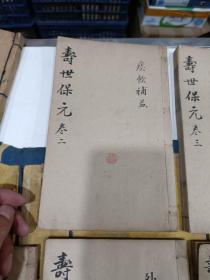 壽世保元 卷二
痰飲補益
壽世保元 卷三
壽
壽